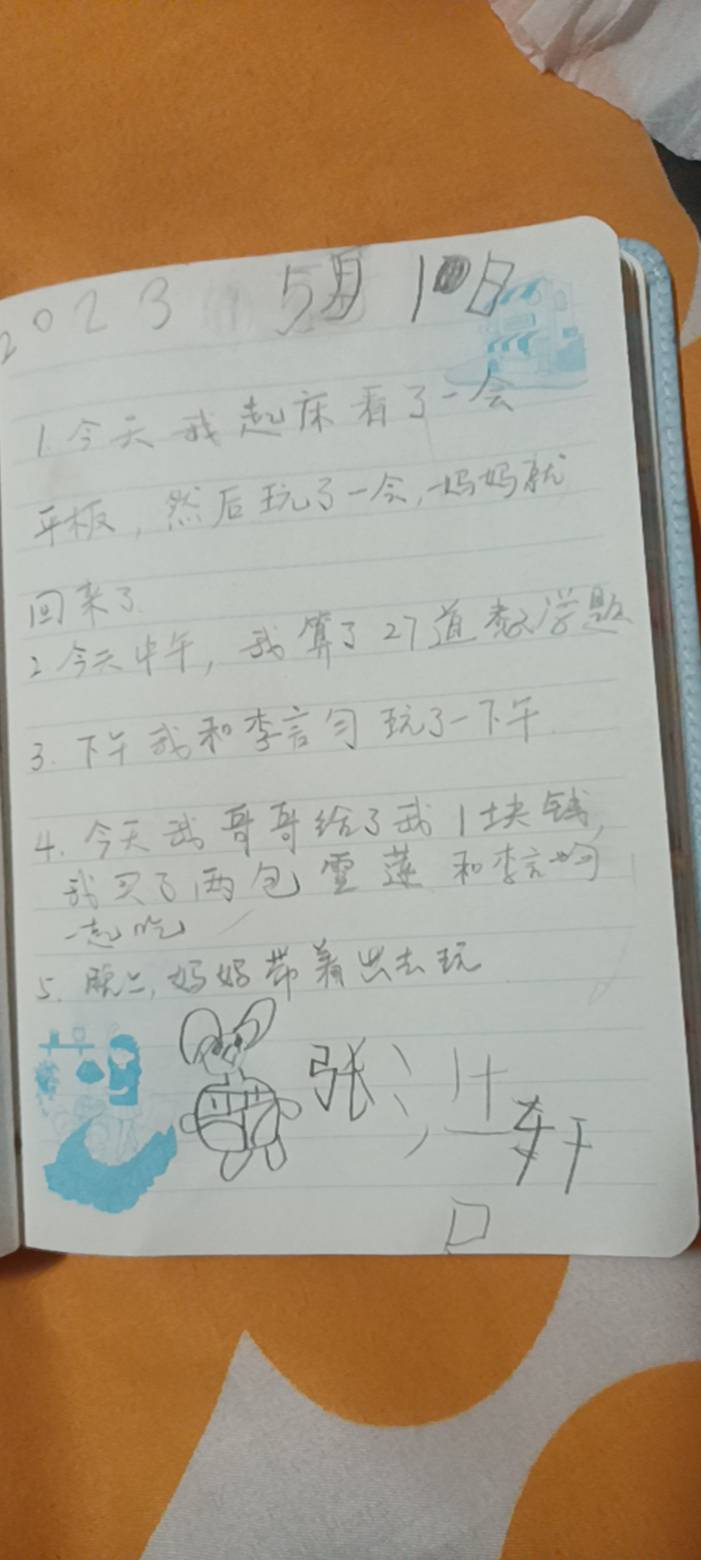 2023 5月1日
1.今天我起床看了一会
平板，然后玩了一会，妈妈就
回来了
2.今天中午，我算了27道数学题
3.下午我和李言匀玩了一下午
4.今天我哥哥给了我1块钱，
我买了两包雪莲和李言匀
一起吃
5.晚上，妈妈带着出去玩
张 轩